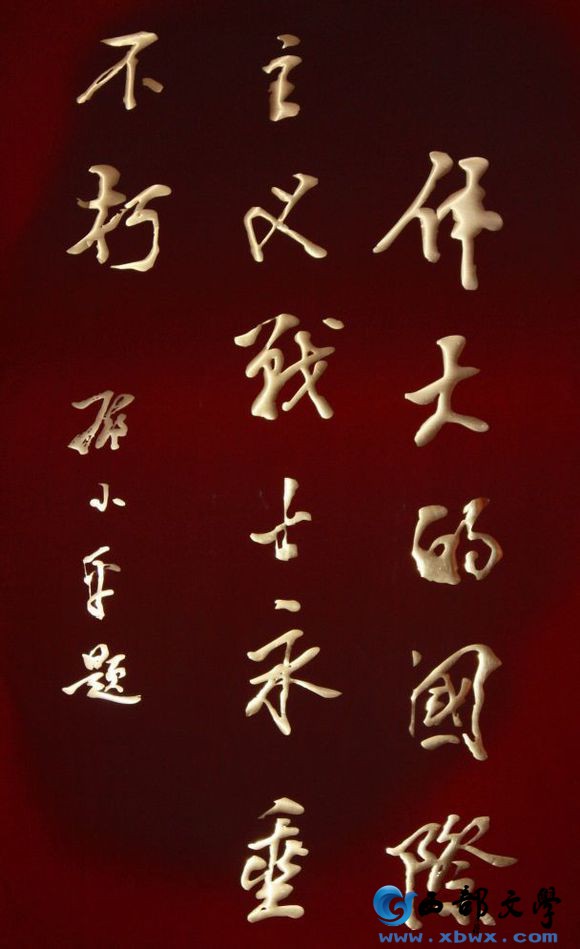 伟大的國際
主义战士永垂
不朽
邓小平題
西部文學
www.xbwx.com